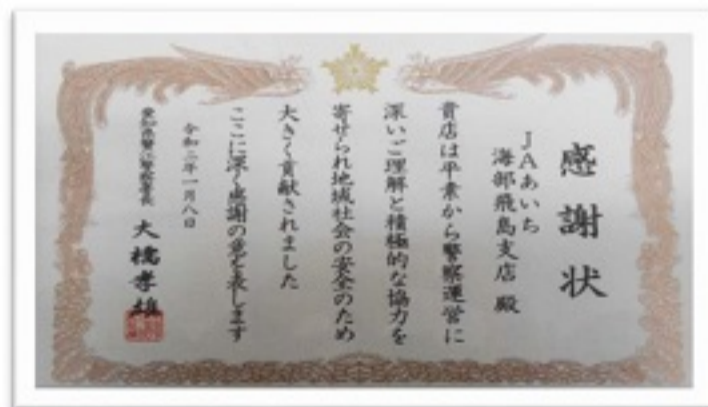 感謝状
JAあいち
海部飛島支店 殿
貴店は平素から警察運営に
深いご理解と積極的な協力を
寄せられ地域社会の安全のため
大きく貢献されました
ここに深く感謝の意を表します
令和二年一月八日
愛知県蟹江警察署長 大橋孝雄